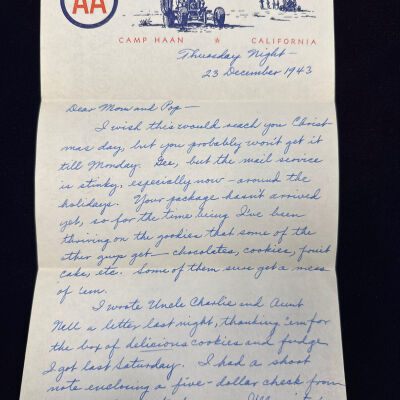 AA
CAMP HAAN ★ CALIFORNIA
Thursday Night —
23 December 1943
Dear Mom and Pop —
I wish this would reach you Christ
mas day, but you probably won't get it
till Monday. Gee, but the mail service
is stinky, especially now – around the
holidays. Your package hasn't arrived
yet, so for the time being I've been
thriving on the gookies that some of the
other guys get – chocolates, cookies, fruit
cake, etc. Some of them sure get a mess
of 'em.
I wrote Uncle Charlie and Aunt
Nell a letter last night, thanking 'em for
the box of delicious cookies and fudge
I got last Saturday. I had a short
note enclosing a five-dollar check from